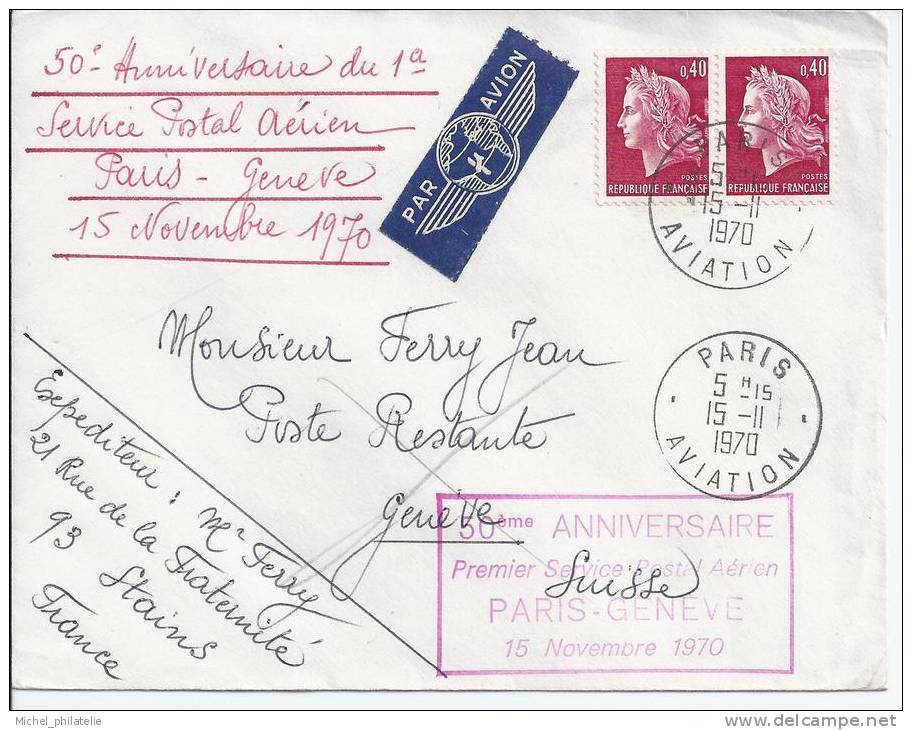 50e Anniversaire du 1a
Service Postal Aérien
Paris - Genève
15 Novembre 1970
PAR AVION
0,40
POSTES
REPUBLIQUE FRANÇAISE
0,40
POSTES
REPUBLIQUE FRANÇAISE
PARIS
15 -11
1970
AVIATION
Monsieur Ferry Jean
Poste Restante
Genève
Suisse
PARIS
5 H 15
15 -11
1970
AVIATION
Expediteur : Mr Ferry
21 Rue de la Fraternité
93 Stains
France
50ème ANNIVERSAIRE
Premier Service Postal Aérien
PARIS-GENEVE
15 Novembre 1970
Michel_philatelie
delcampe.net